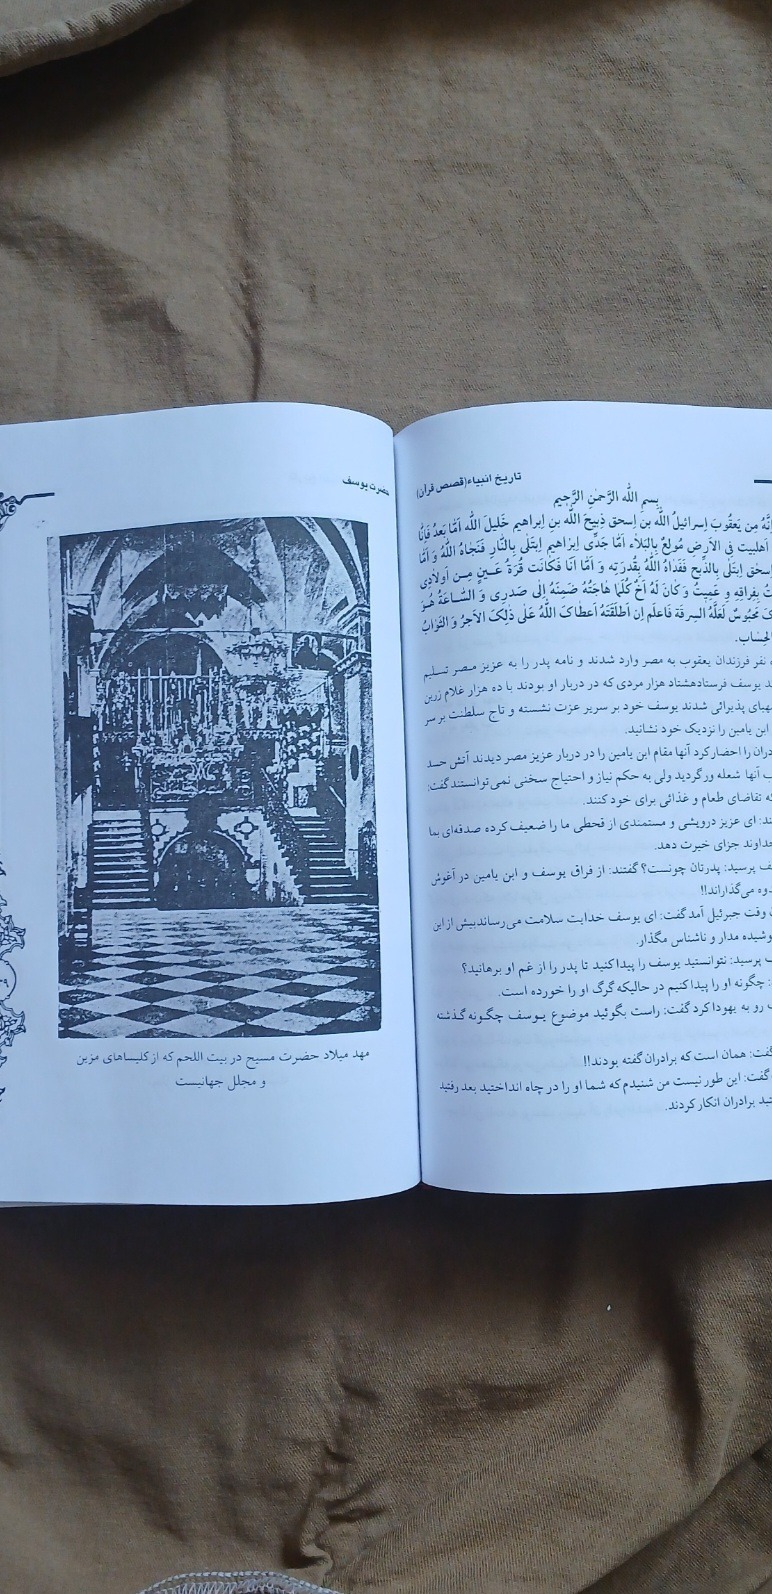 تاریخ انبیاء(قصص قرآن)
بِسمِ اللّه الرَّحمٰنِ الرَّحِیمِ
مِن یَعقُوبَ اِسرائیلُ اللّه بن اِسحٰق ذَبِیحَ اللّه بن اِبراهیم خَلیلَ اللّه اَمّا بَعدُ فَاِنّا
اَهلبیت فِی الاَرضِ مُولعٌ بِالبَلاء اَمّا جَدّی اِبراهیم اِبتَلٰی بِالنّارِ فَنَجاهُ اللّهُ وَ اَمّا
اِبتَلٰی بِالذَّبح فَفَداهُ اللّهُ بِقُدرَتِه وَ اَمّا اَنَا فَکانَت قُرّةُ عَینٍ مِن اَولادی
بِفِراقِهِ وَ عَمِیتُ وَ کانَ لَهُ اَخٌ کُلَّما هاجَتهُ ضَمِنَهُ اِلیٰ صَدرِی وَ السّاعَةُ هُوَ
مَحبُوسٌ لَعَلَّهُ السِرقَة فَاعلَم اِن اَطلَقتَهُ اَعطاکَ اللّهُ عَلیٰ ذٰلِکَ الاَجرُ وَ الثَوابُ
نفر فرزندان یعقوب به مصر وارد شدند و نامه پدر را به عزیز مصر تسلیم
یوسف فرستادهشتاد هزار مردی که در دربار او بودند با ده هزار غلام زرین
پذیرائی شدند یوسف خود بر سریر عزت نشسته و تاج سلطنت بر سر
ابن یامین را نزدیک خود نشانید.
را احضار کرد آنها مقام ابن یامین را در دربار عزیز مصر دیدند آتش حسد
آنها شعله ورگردید ولی به حکم نیاز و احتیاج سخنی نمی‌توانستند گفت:
تقاضای طعام و غذائی برای خود کنند.
ای عزیز درویشی و مستمندی از قحطی ما را ضعیف کرده صدقه‌ای بما
جزای خیرت دهد.
پرسید: پدرتان چونست؟ گفتند: از فراق یوسف و ابن یامین در آغوش
می‌گذارند!!
وقت جبرئیل آمد گفت: ای یوسف خدایت سلامت می‌رساندبیش از این
مدار و ناشناس مگذار.
پرسید: نتوانستید یوسف را پیدا کنید تا پدر را از غم او برهانید؟
چگونه او را پیدا کنیم در حالیکه گرگ او را خورده است.
رو به یهودا کرد گفت: راست بگوئید موضوع یوسف چگونه گذشته
همان است که برادران گفته بودند!!
گفت: این طور نیست من شنیدم که شما او را در چاه انداختید بعد رفتید
برادران انکار کردند.
حضرت یوسف
مهد میلاد حضرت مسیح در بیت اللحم که از کلیساهای مزین
و مجلل جهانیست